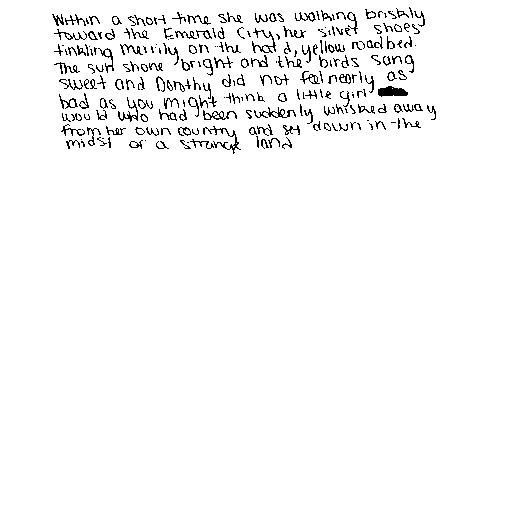 Within a short time she was walking briskly
toward the Emerald City, her silver shoes
tinkling merrily on the hard, yellow roadbed.
The sun shone bright and the birds sang
sweet and Dorothy did not feel nearly as
bad as you might think a little girl
would who had been suddenly whisked away
from her own country and set down in the
midst of a strange land